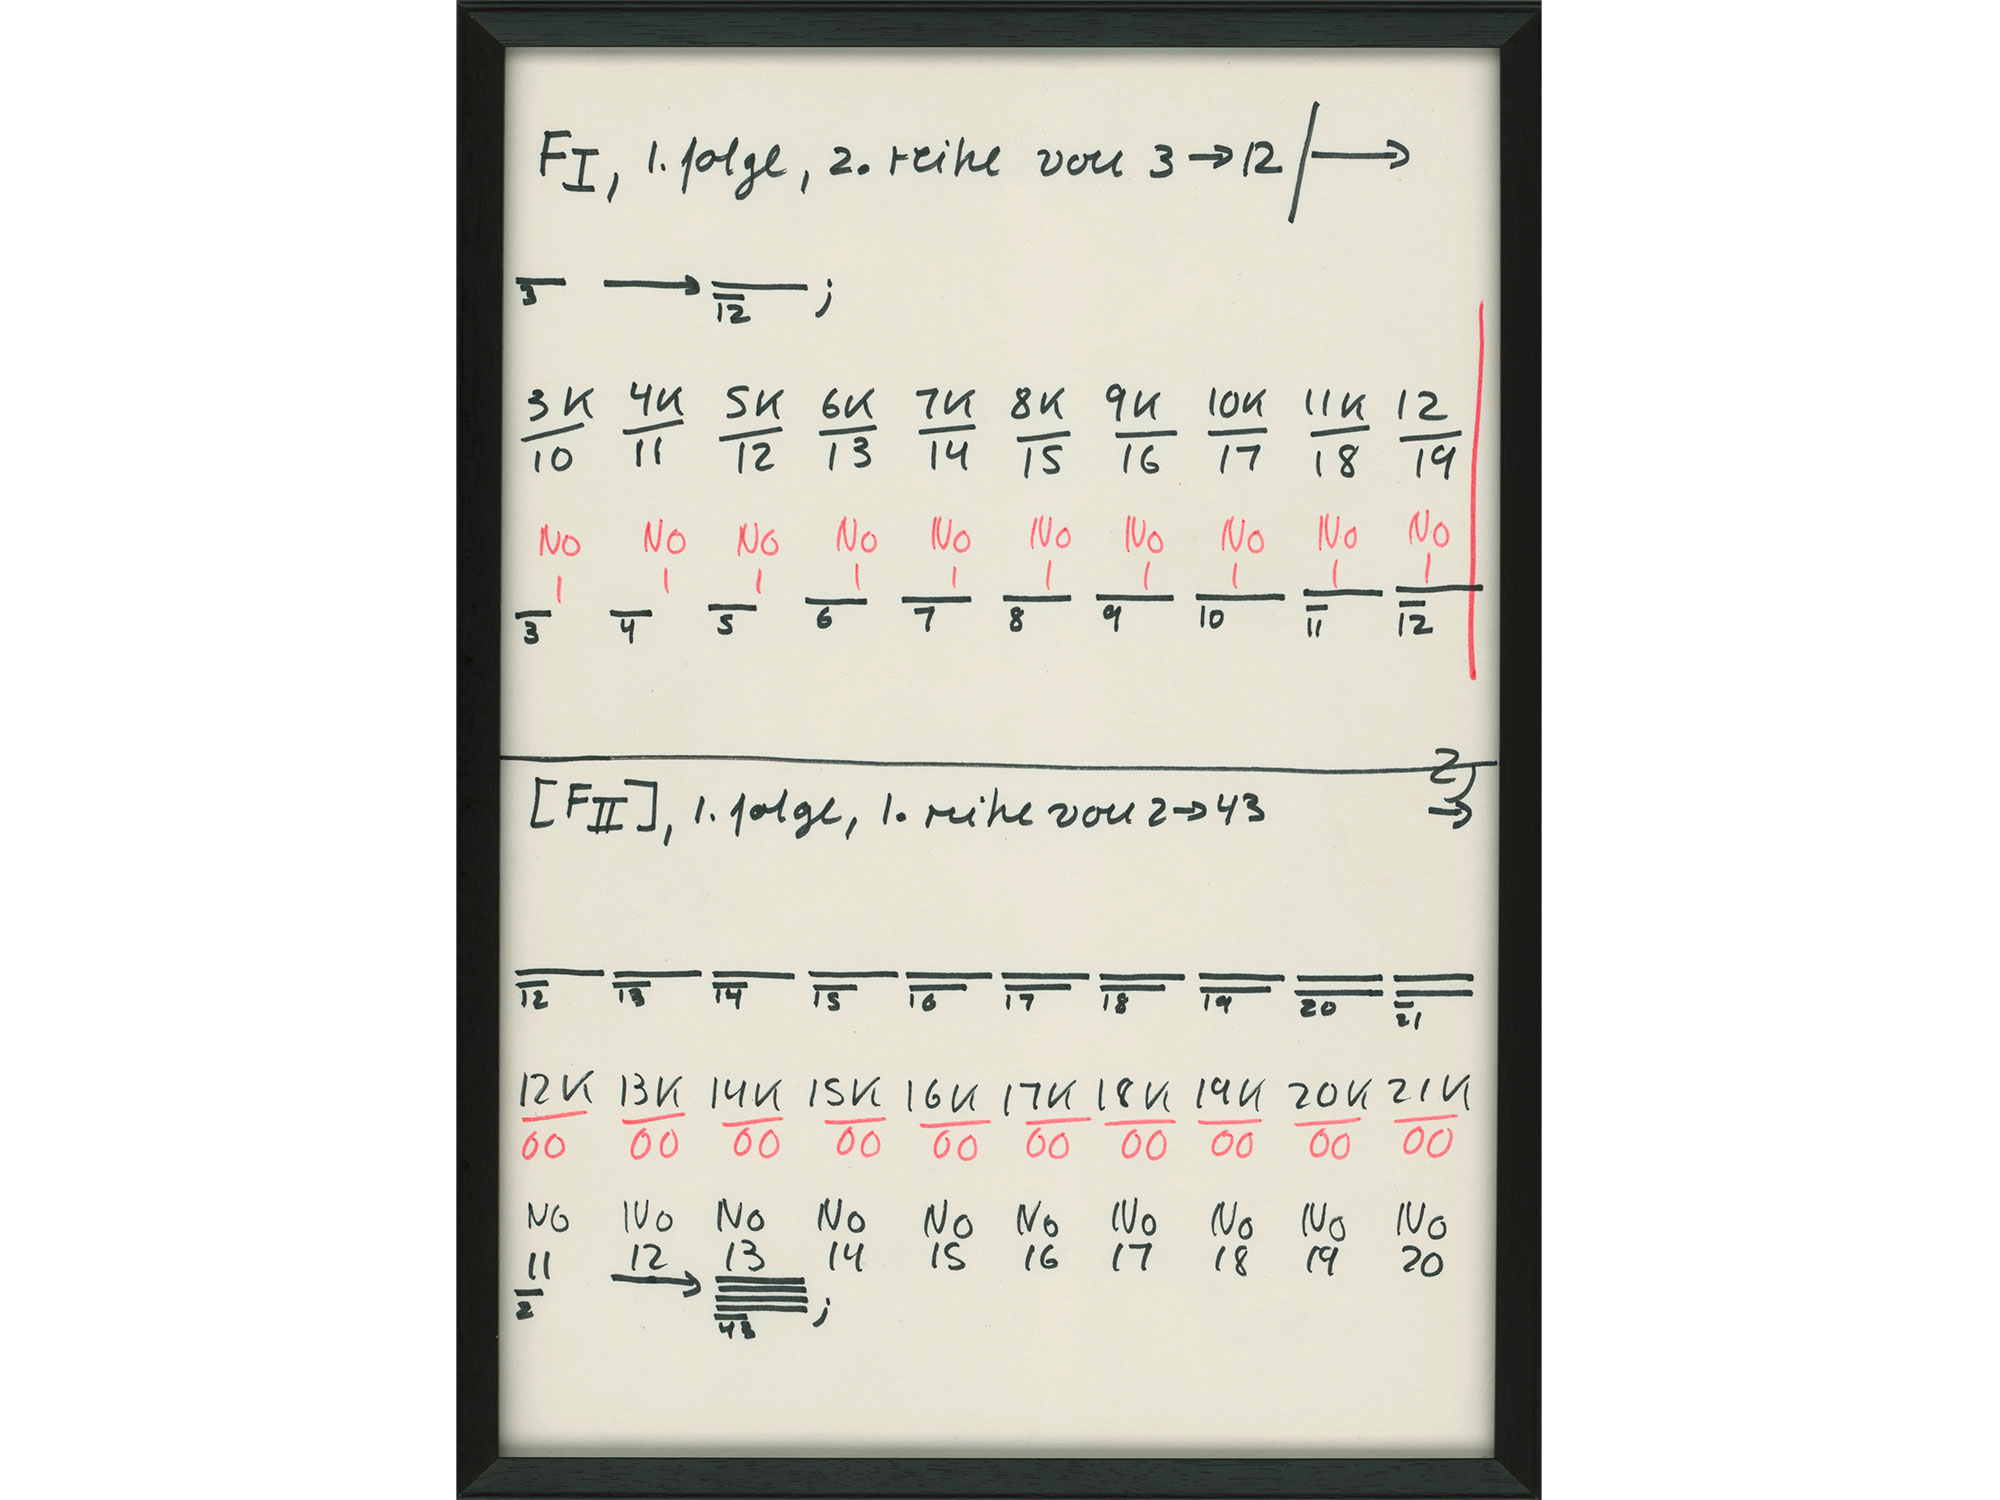 FI, 1. folge, 2. reihe von 3 → 12 / →
3 → 12 ;
3K 4K 5K 6K 7K 8K 9K 10K 11K 12
10 11 12 13 14 15 16 17 18 19
No No No No No No No No No No
1 1 1 1 1 1 1 1 1 1
3 4 5 6 7 8 9 10 11 12
2
[FII], 1. folge, 1. reihe von 2 → 43 →
12 13 14 15 16 17 18 19 20 21
12K 13K 14K 15K 16K 17K 18K 19K 20K 21K
00 00 00 00 00 00 00 00 00 00
No No No No No No No No No No
11 12 13 14 15 16 17 18 19 20
2 → 43 ;